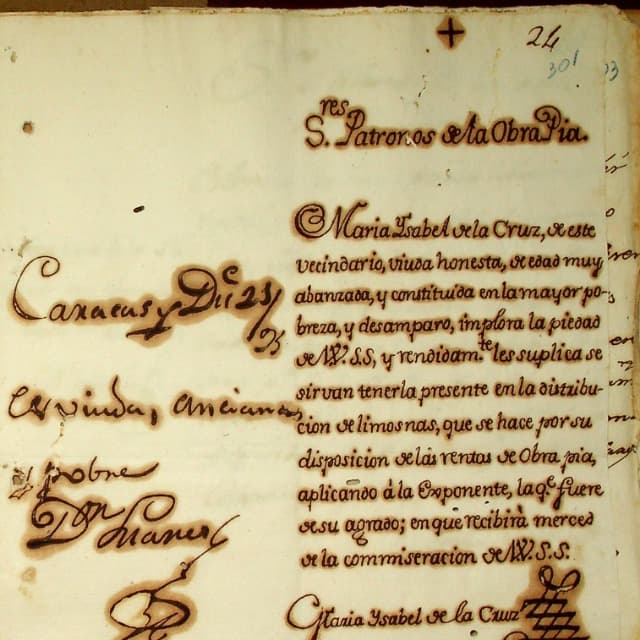 24
301
S.res Patronos de la Obra Pia.
Maria Ysabel de la Cruz, de este
vecindario, viuda honesta, de edad muy
abanzada, y constituida en la mayor po-
breza, y desamparo, implora la piedad
de VV. S.S, y rendidam.te les suplica se
sirvan tenerla presente en la distribu-
cion de limosnas, que se hace por su
disposicion de las rentas de Obra pia,
aplicando á la Exponente, la q.e fuere
de su agrado; en que recibirà merced
de la commiseracion de VV. S.S.
Maria Ysabel de la Cruz
Caracas y D.e 23/
25
Es viuda, anciana
y pobre